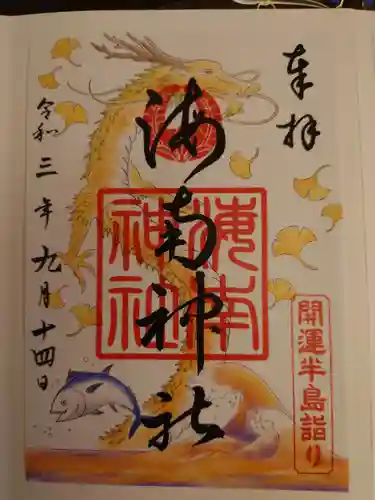 奉拝
海南神社
海南
神社
開運半島詣り
令和三年九月十四日